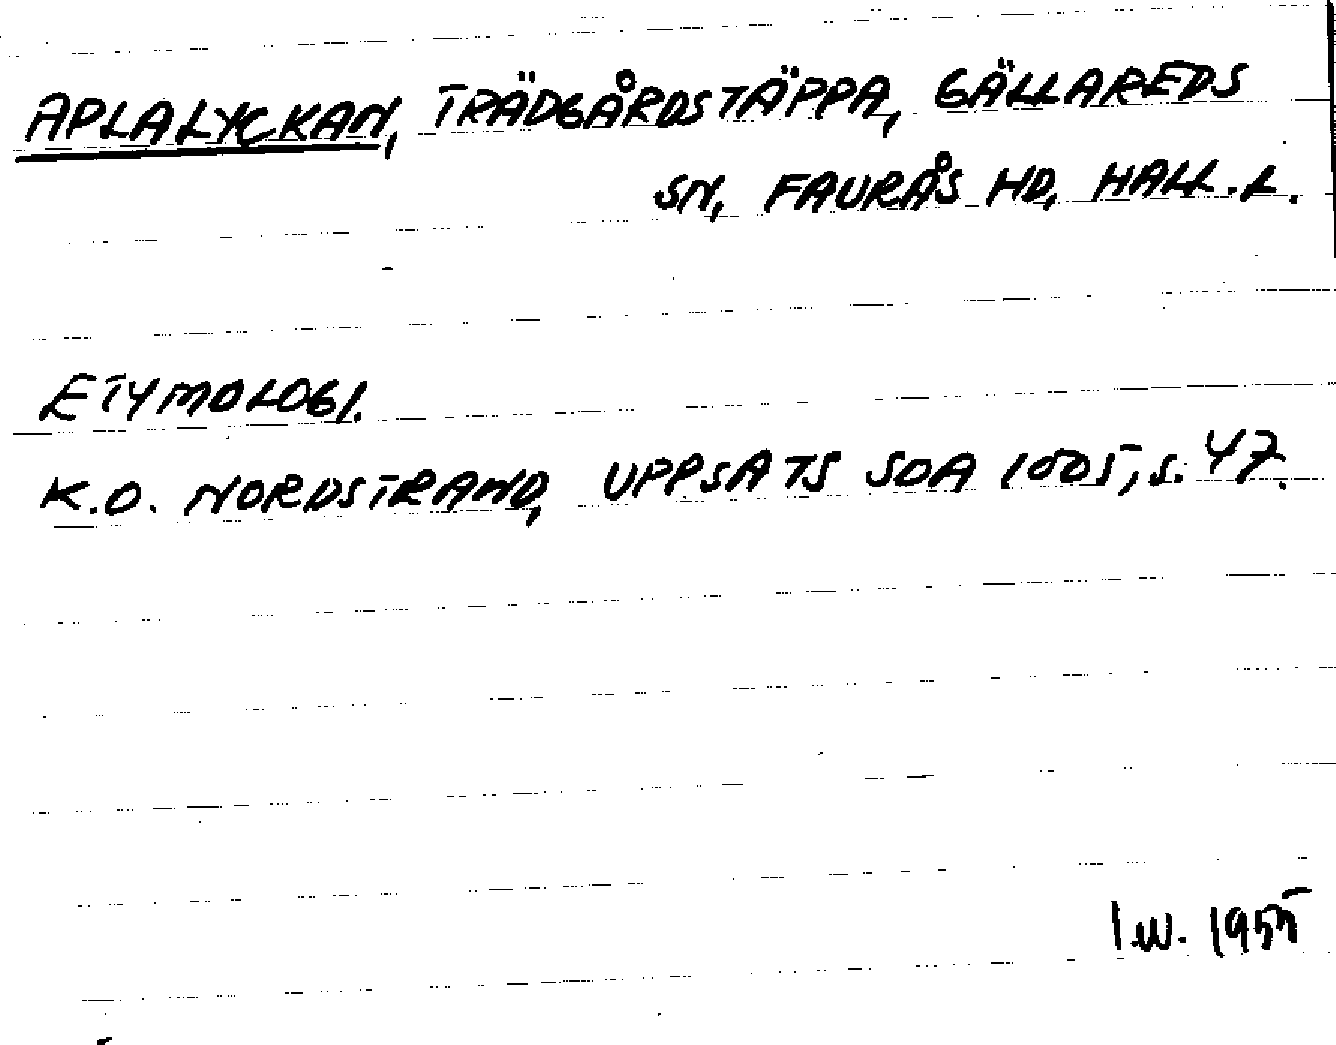 APLALYCKAN, TRÄDGÅRDSTÄPPA, GÄLLAREDS
SN, FAURÅS HD, HALL.L.
ETYMOLOGI.
K.O. NORDSTRAND, UPPSATS SOA 1005, S. 47.
I.W. 1955